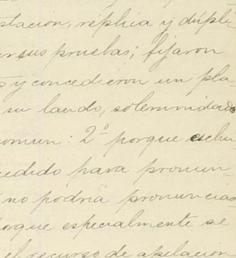 stacion, réplica y dúpli
sus pruebas; fijaron
y concedieron un pla
su laudo, solemnidades
comun: 2º porque
cedido para pronun
no podría pronunciar
orque especialmente se
el recurso de apelacion